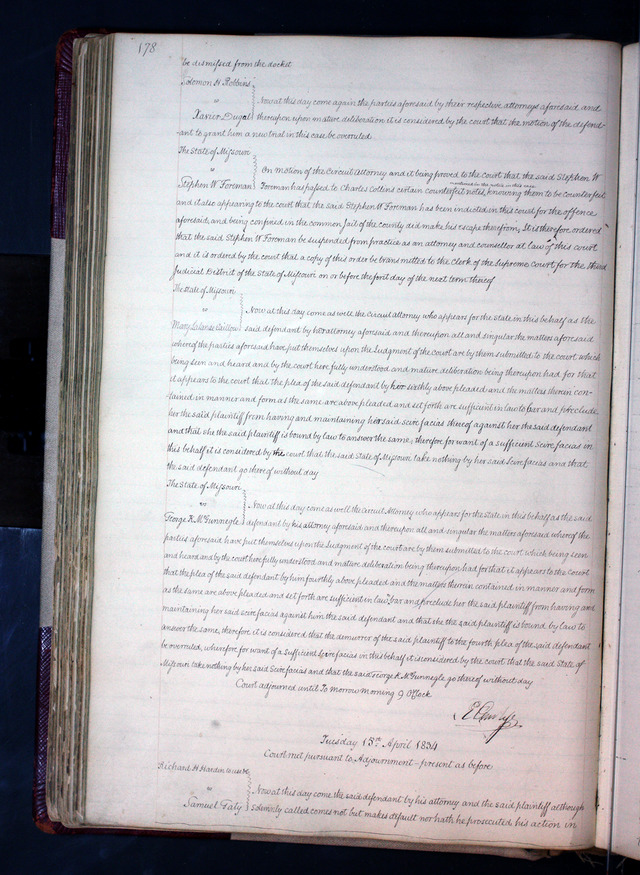 178
be dismissed from the docket
Solomon H Robbins
vs
Now at this day come again the parties aforesaid by their respective attorneys aforesaid and
Xavier Dugal thereupon on mature deliberation it is considered by the court that the motion of the defend-
-ant to grant him a new trial in this case be overruled
The State of Missouri
vs
On motion of the Circuit Attorney and it being proved to the court that the said Stephen W
Stephen W Foreman Foreman has passed to Charles Collins certain counterfeit notes, knowing them to be counterfeit
and it also appearing to the court that the said Stephen W Foreman has been indicted in this court for the offence
aforesaid, and being confined in the common Jail of the county did make his escape therefrom, It is therefore ordered
that the said Stephen W Foreman be suspended from practice as an attorney and counsellor at law of this court
and it is ordered by the court that a copy of this order be transmitted to the clerk of the Supreme Court for the third
Judicial District of the State of Missouri on or before the first day of the next term thereof
The State of Missouri
vs
Now at this day come as well the Circuit attorney who appears for the state in this behalf as the
Mary Lalande Caillou said defendant by her attorney aforesaid and thereupon all and singular the matters aforesaid
whereof the parties aforesaid have put themselves upon the Judgment of the court are by them submitted to the court which
being seen and heard and by the court here fully understood and mature deliberation being thereupon had for that
it appears to the court that the plea of the said defendant by her sixthly above pleaded and the matters therein con-
-tained in manner and form as the same are above pleaded and set forth are sufficient in law to bar and preclude
her the said plaintiff from having and maintaining her said scire facias thereof against her the said defendant
and that she the said plaintiff is bound by law to answer the same, therefore for want of a sufficient Scire facias in
this behalf it is considered by the court that the said State of Missouri take nothing by her said Scire facias and that
the said defendant go thereof without day
The State of Missouri
vs
Now at this day come as well the Circuit Attorney who appears for the State in this behalf as the said
George K McGunnegle defendant by his attorney aforesaid and thereupon all and singular the matters aforesaid whereof the
parties aforesaid have put themselves upon the Judgment of the court are by them submitted to the court which being seen
and heard and by the court here fully understood and mature deliberation being thereupon had for that it appears to the court
that the plea of the said defendant by him fourthly above pleaded and the matters therein contained in manner and form
as the same are above pleaded and set forth are sufficient in law bar and preclude her the said plaintiff from having and
maintaining her said scire facias against him the said defendant and that she the said plaintiff is bound by law to
answer the same, therefore it is considered that the demurrer of the said plaintiff to the fourth plea of the said defendant
be overruled, wherefore for want of a sufficient Scire facias in this behalf it is considered by the court that the said State of
Missouri take nothing by her said Scire facias and that the said George K McGunnegle go thereof without day
Court adjourned until To morrow morning 9 O'Clock
Tuesday 15th April 1834
Court met pursuant to Adjournment - present as before
Richard H Harden to use &c
vs
Now at this day come the said defendant by his attorney and the said plaintiff although
Samuel Gaty solemnly called comes not but makes default nor hath he prosecuted his action in